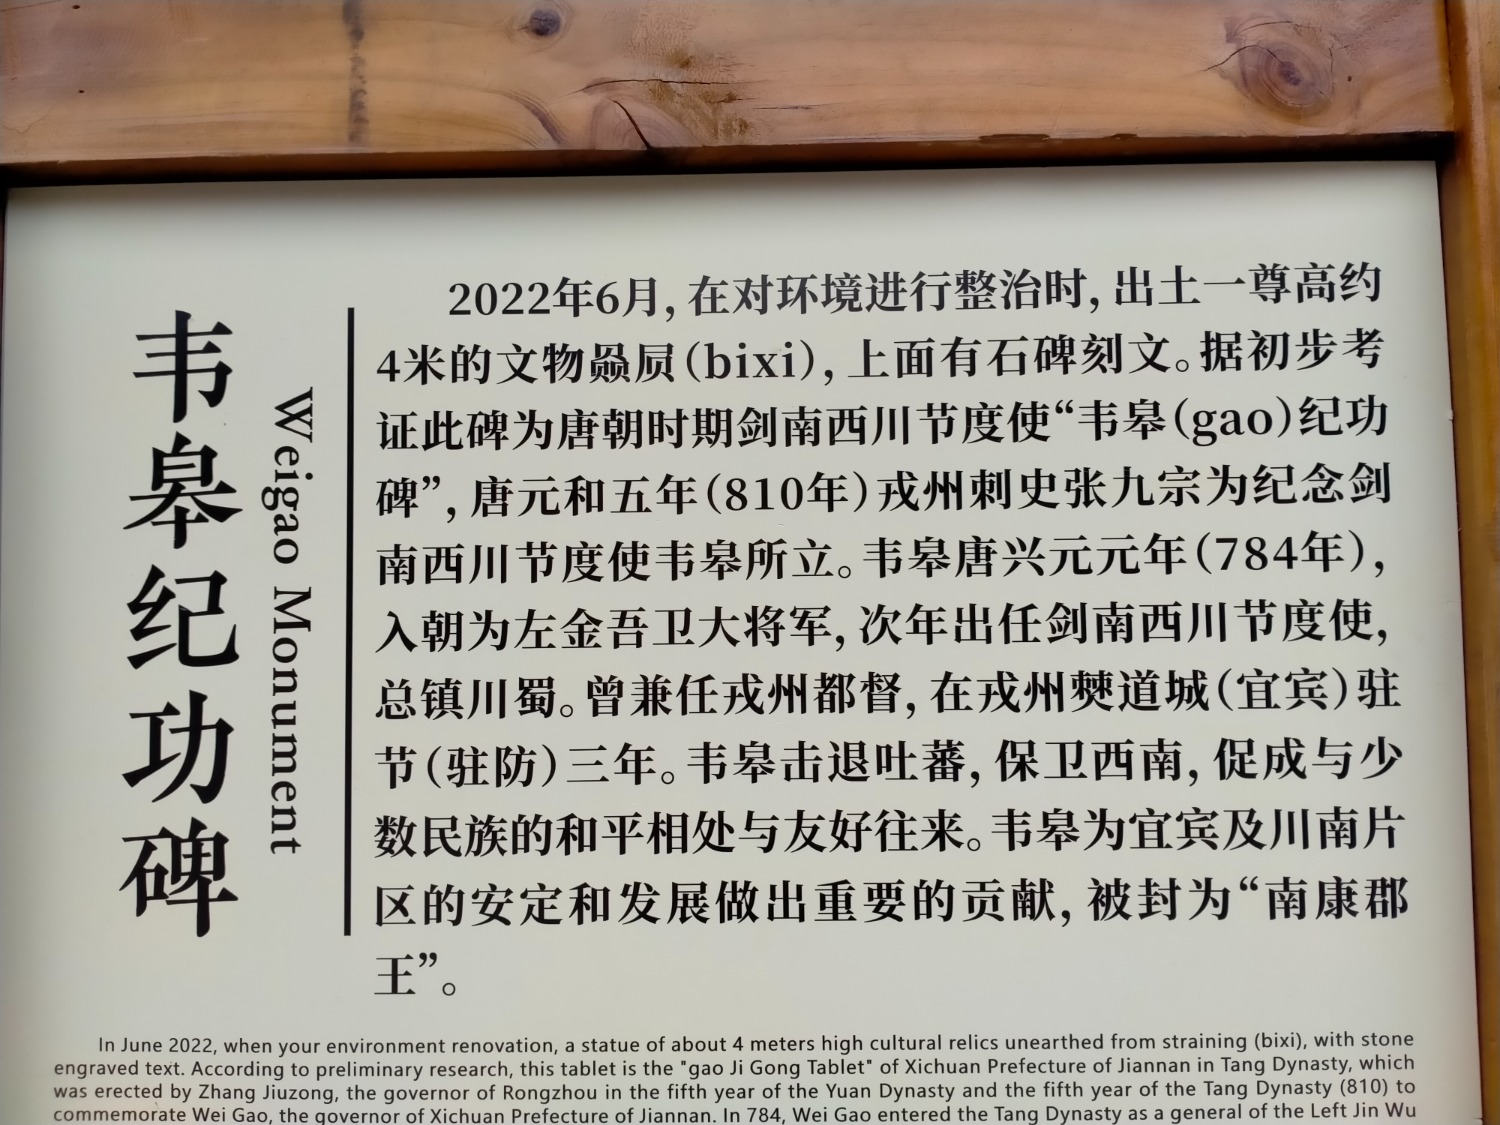 韦皋纪功碑
Weigao Monument
2022年6月,在对环境进行整治时,出土一尊高约
4米的文物赑屃(bixi),上面有石碑刻文。据初步考
证此碑为唐朝时期剑南西川节度使“韦皋(gao)纪功
碑”,唐元和五年(810年)戎州刺史张九宗为纪念剑
南西川节度使韦皋所立。韦皋唐兴元元年(784年),
入朝为左金吾卫大将军,次年出任剑南西川节度使,
总镇川蜀。曾兼任戎州都督,在戎州僰道城(宜宾)驻
节(驻防)三年。韦皋击退吐蕃,保卫西南,促成与少
数民族的和平相处与友好往来。韦皋为宜宾及川南片
区的安定和发展做出重要的贡献,被封为“南康郡
王”。
In June 2022, when your environment renovation, a statue of about 4 meters high cultural relics unearthed from straining (bixi), with stone
engraved text. According to preliminary research, this tablet is the "gao Ji Gong Tablet" of Xichuan Prefecture of Jiannan in Tang Dynasty, which
was erected by Zhang Jiuzong, the governor of Rongzhou in the fifth year of the Yuan Dynasty and the fifth year of the Tang Dynasty (810) to
commemorate Wei Gao, the governor of Xichuan Prefecture of Jiannan. In 784, Wei Gao entered the Tang Dynasty as a general of the Left Jin Wu